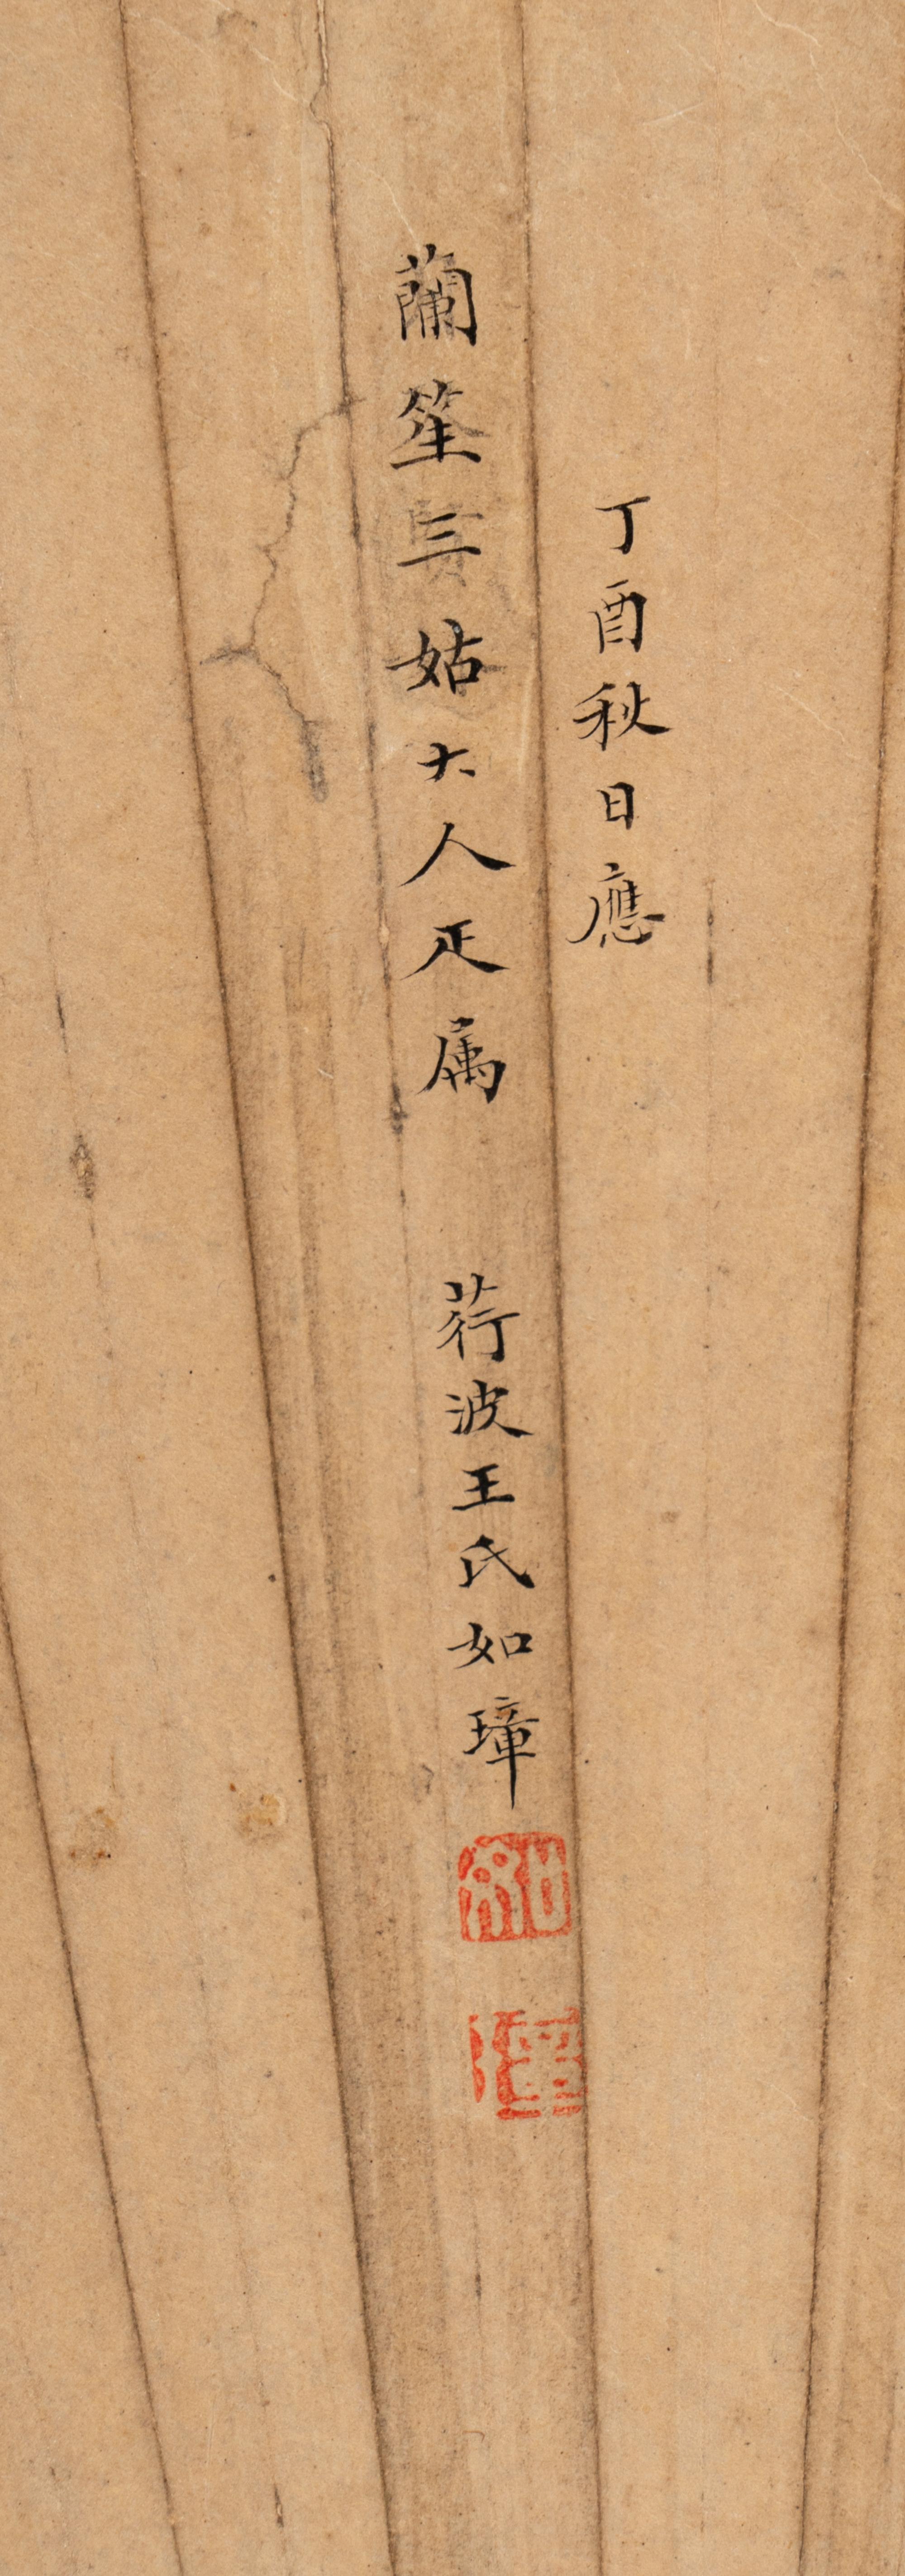 丁酉秋日應
蘭笙三姑大人正属 荇波王氏如璋